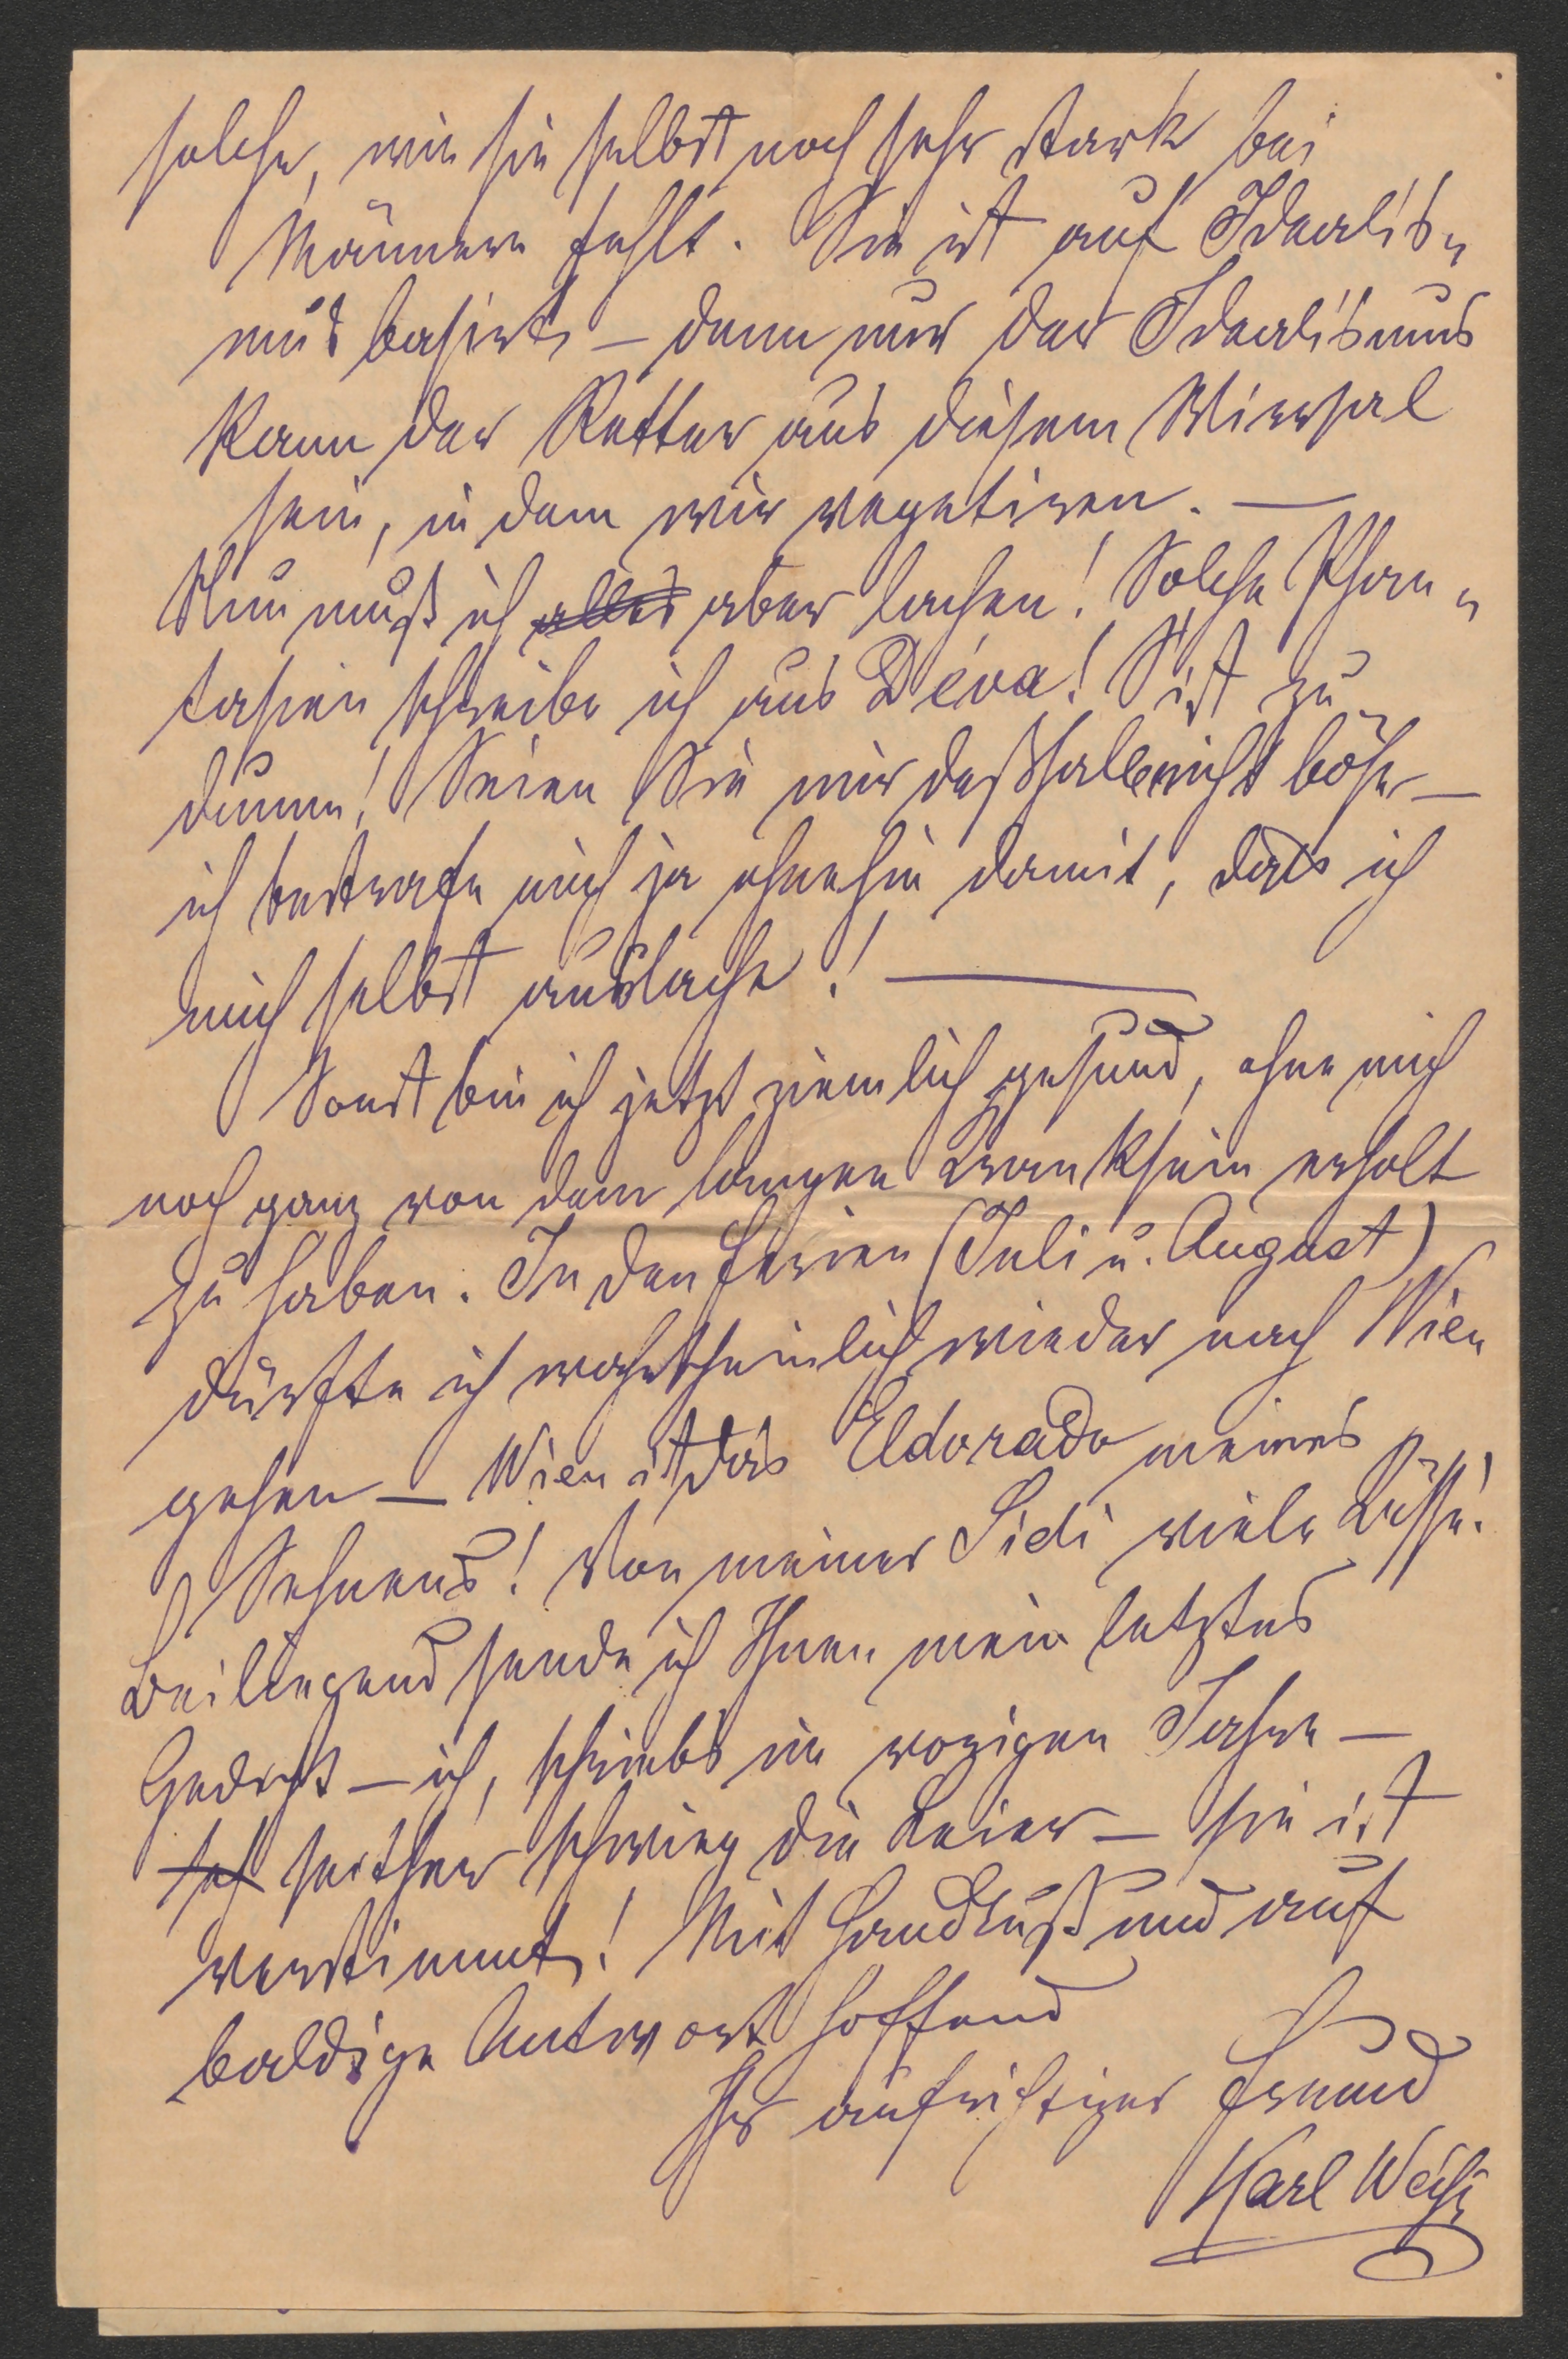 solche, wie sie selbst noch sehr stark bei
Männern fehlt. Sie ist auf Idealis„
mus basirt, – denn nur der Idealismus
kann der Retter aus diesem Wirrsal
sein, in dem wir vegetiren. —
Nun muß ich alles aber lachen! Solche Phan„
tasien schreibe ich aus Déva! S' ist zu
dumm! Seien Sie mir deßhalb nicht böse –
ich bestrafe mich ja ohnehin damit, dass ich
mich selbst auslache! —
Sonst bin ich jetzt ziemlich gesund, ohne mich
noch ganz von dem langen Kranksein erholt
zu haben. In den Ferien (Juli u. August)
dürfte ich wahrscheinlich wieder nach Wien
gehen – Wien ist das Eldorado meines
Sehnens! Von meiner Sidi viele Küsse!
Beiliegend sende ich Ihnen mein letztes
Gedicht – ich, schrieb's im vorigen Jahre –
seither schwieg die Leier – sie ist
verstimmt! Mit Handkuß und auf
baldige Antwort hoffend
Ihr aufrichtiger Freund
Karl Weiß